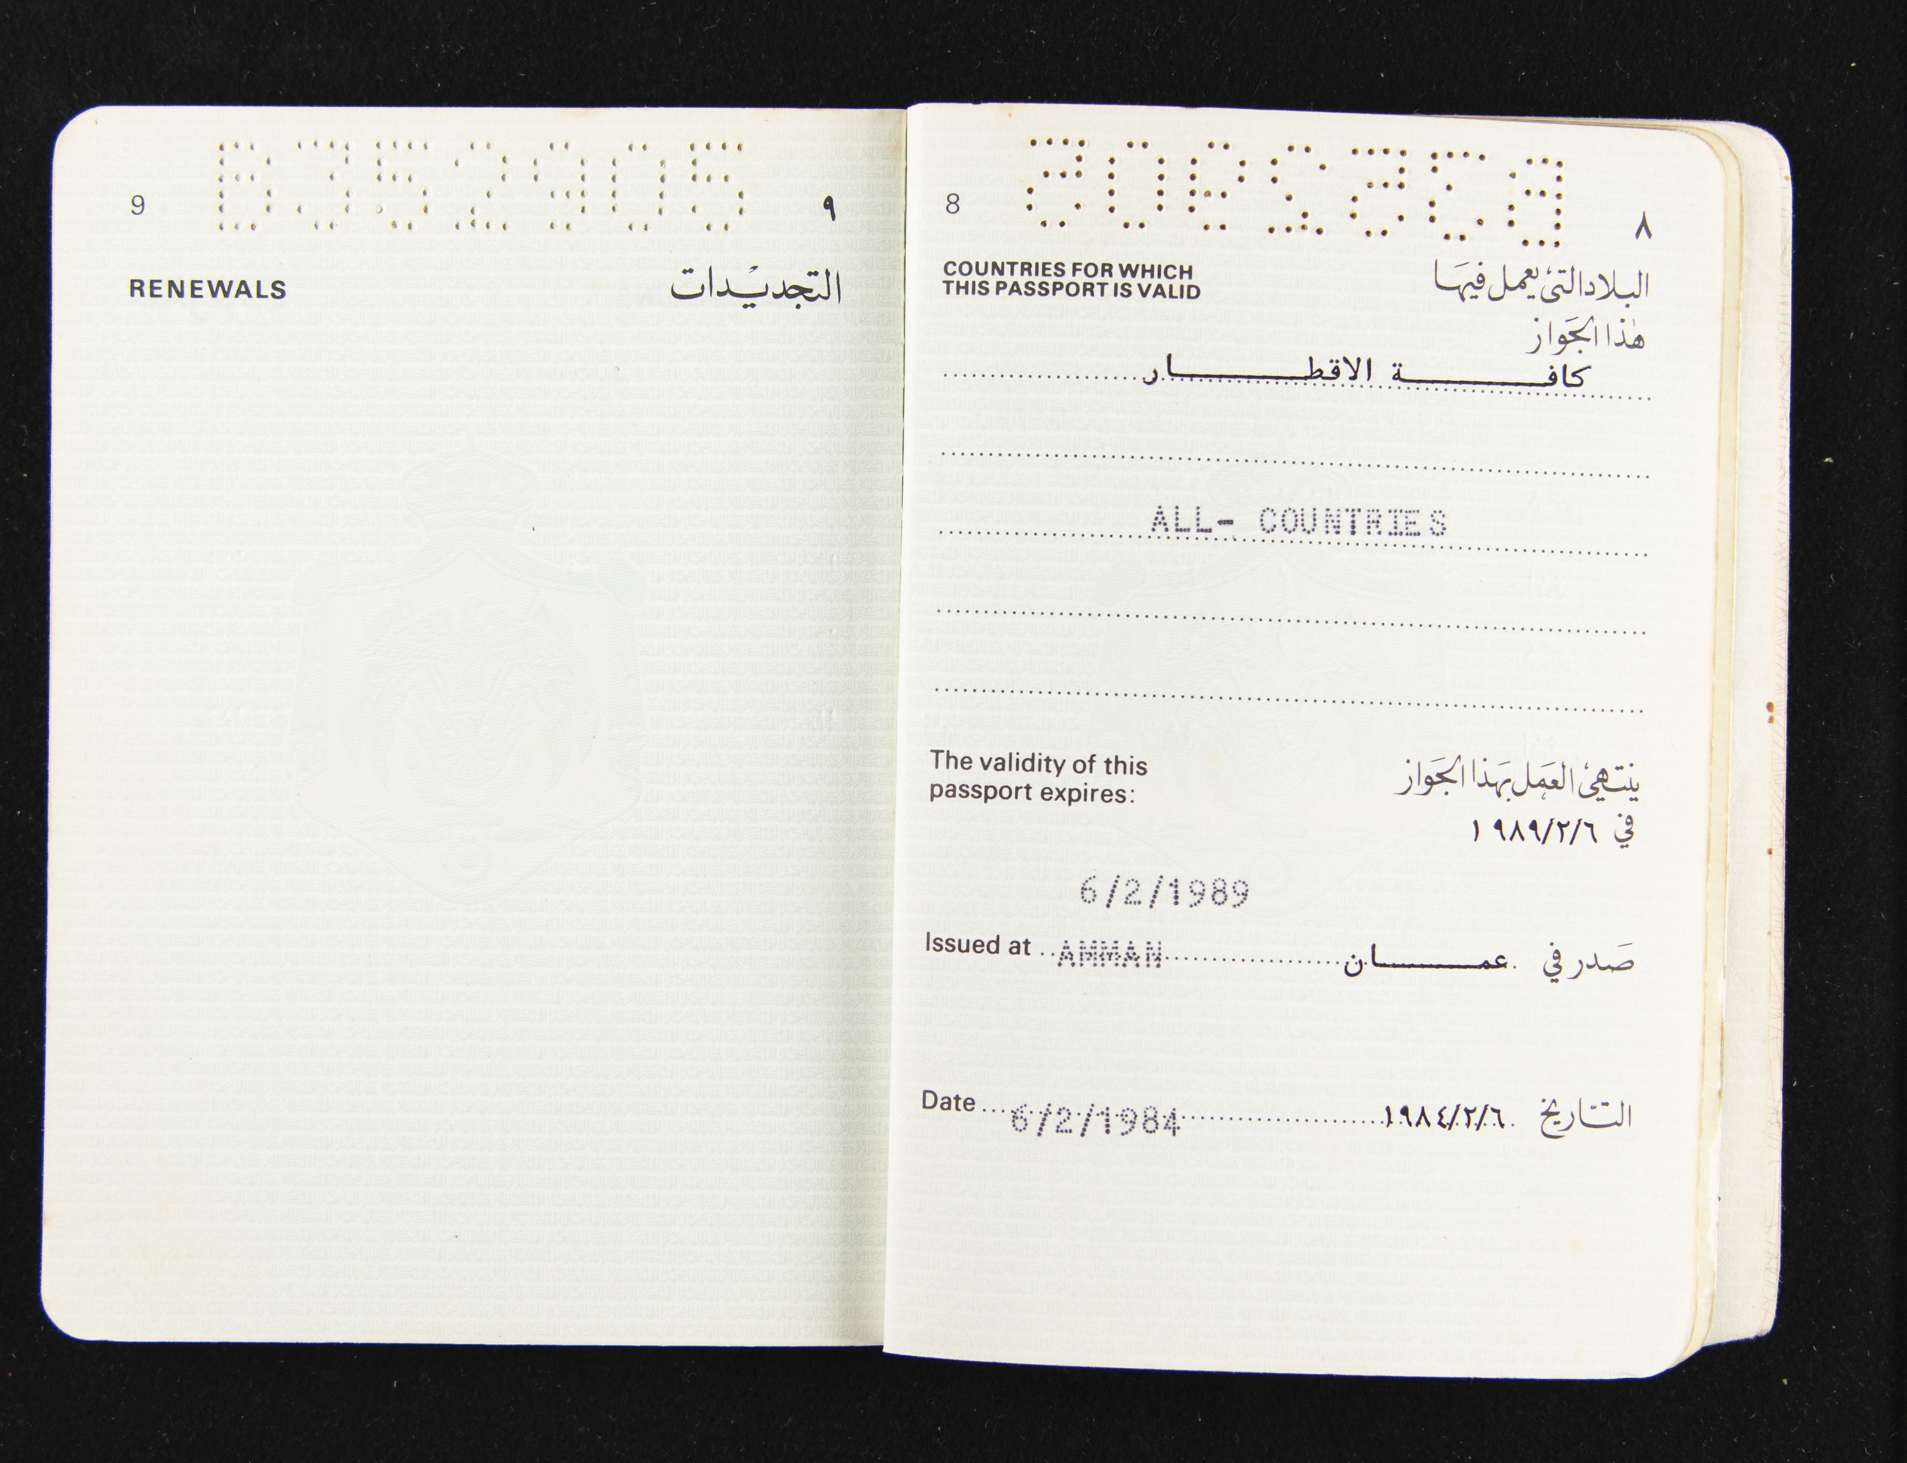 B352905
8 ٨
COUNTRIES FOR WHICH البلاد التي يعمل فيها
THIS PASSPORT IS VALID هذا الجواز
كافة الاقطار
ALL- COUNTRIES
The validity of this ينتهي العمل بهذا الجواز
passport expires: في ١٩٨٩/٢/٦
6/2/1989
Issued at AMMAN صدر في عمان
Date 6/2/1984 التاريخ ١٩٨٤/٢/٦
B352905
9 ٩
RENEWALS التجديدات